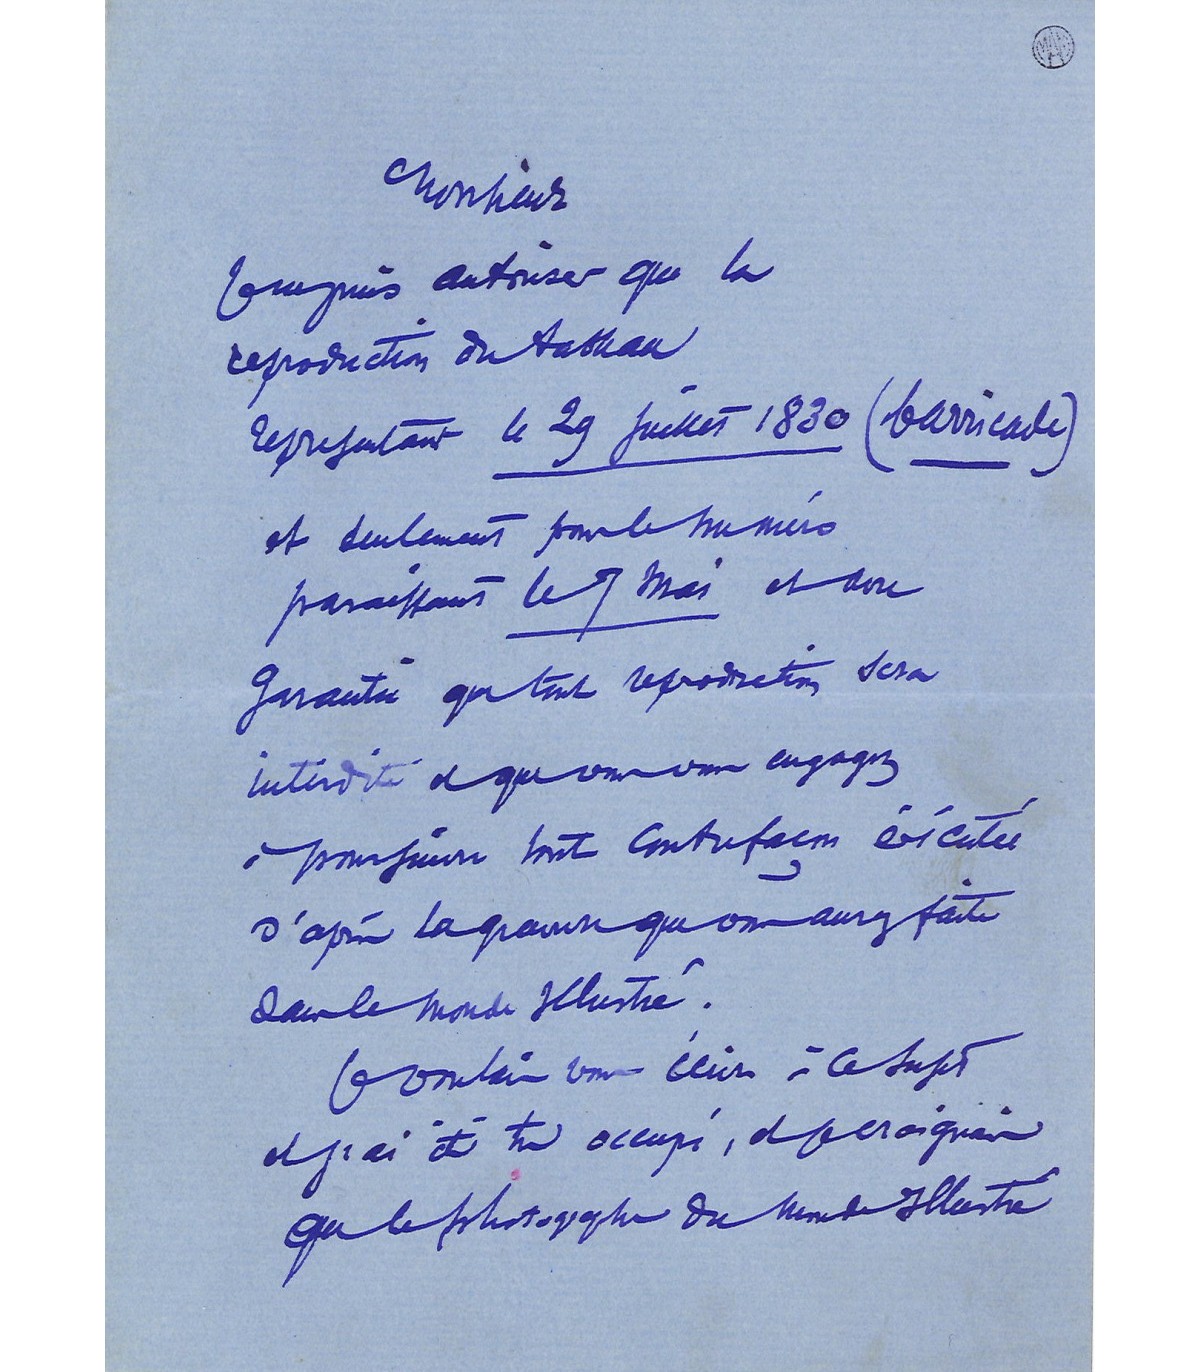 Monsieur
Je ne puis autoriser que la
reproduction du tableau
representant le 29 juillet 1830 (barricade)
et seulement pour le numéro
paraissant le 7 Mai et avec
Garantie que toute reproduction sera
interdite et que vous vous engagez
à poursuivre toute Contrefaçon éxécutée
d'après la gravure que vous aurez faite
dans le Monde Illustré.
Je voulais vous écrire à ce sujet
et j'ai été très occupé, et je craignais
que le photographe du Monde Illustré